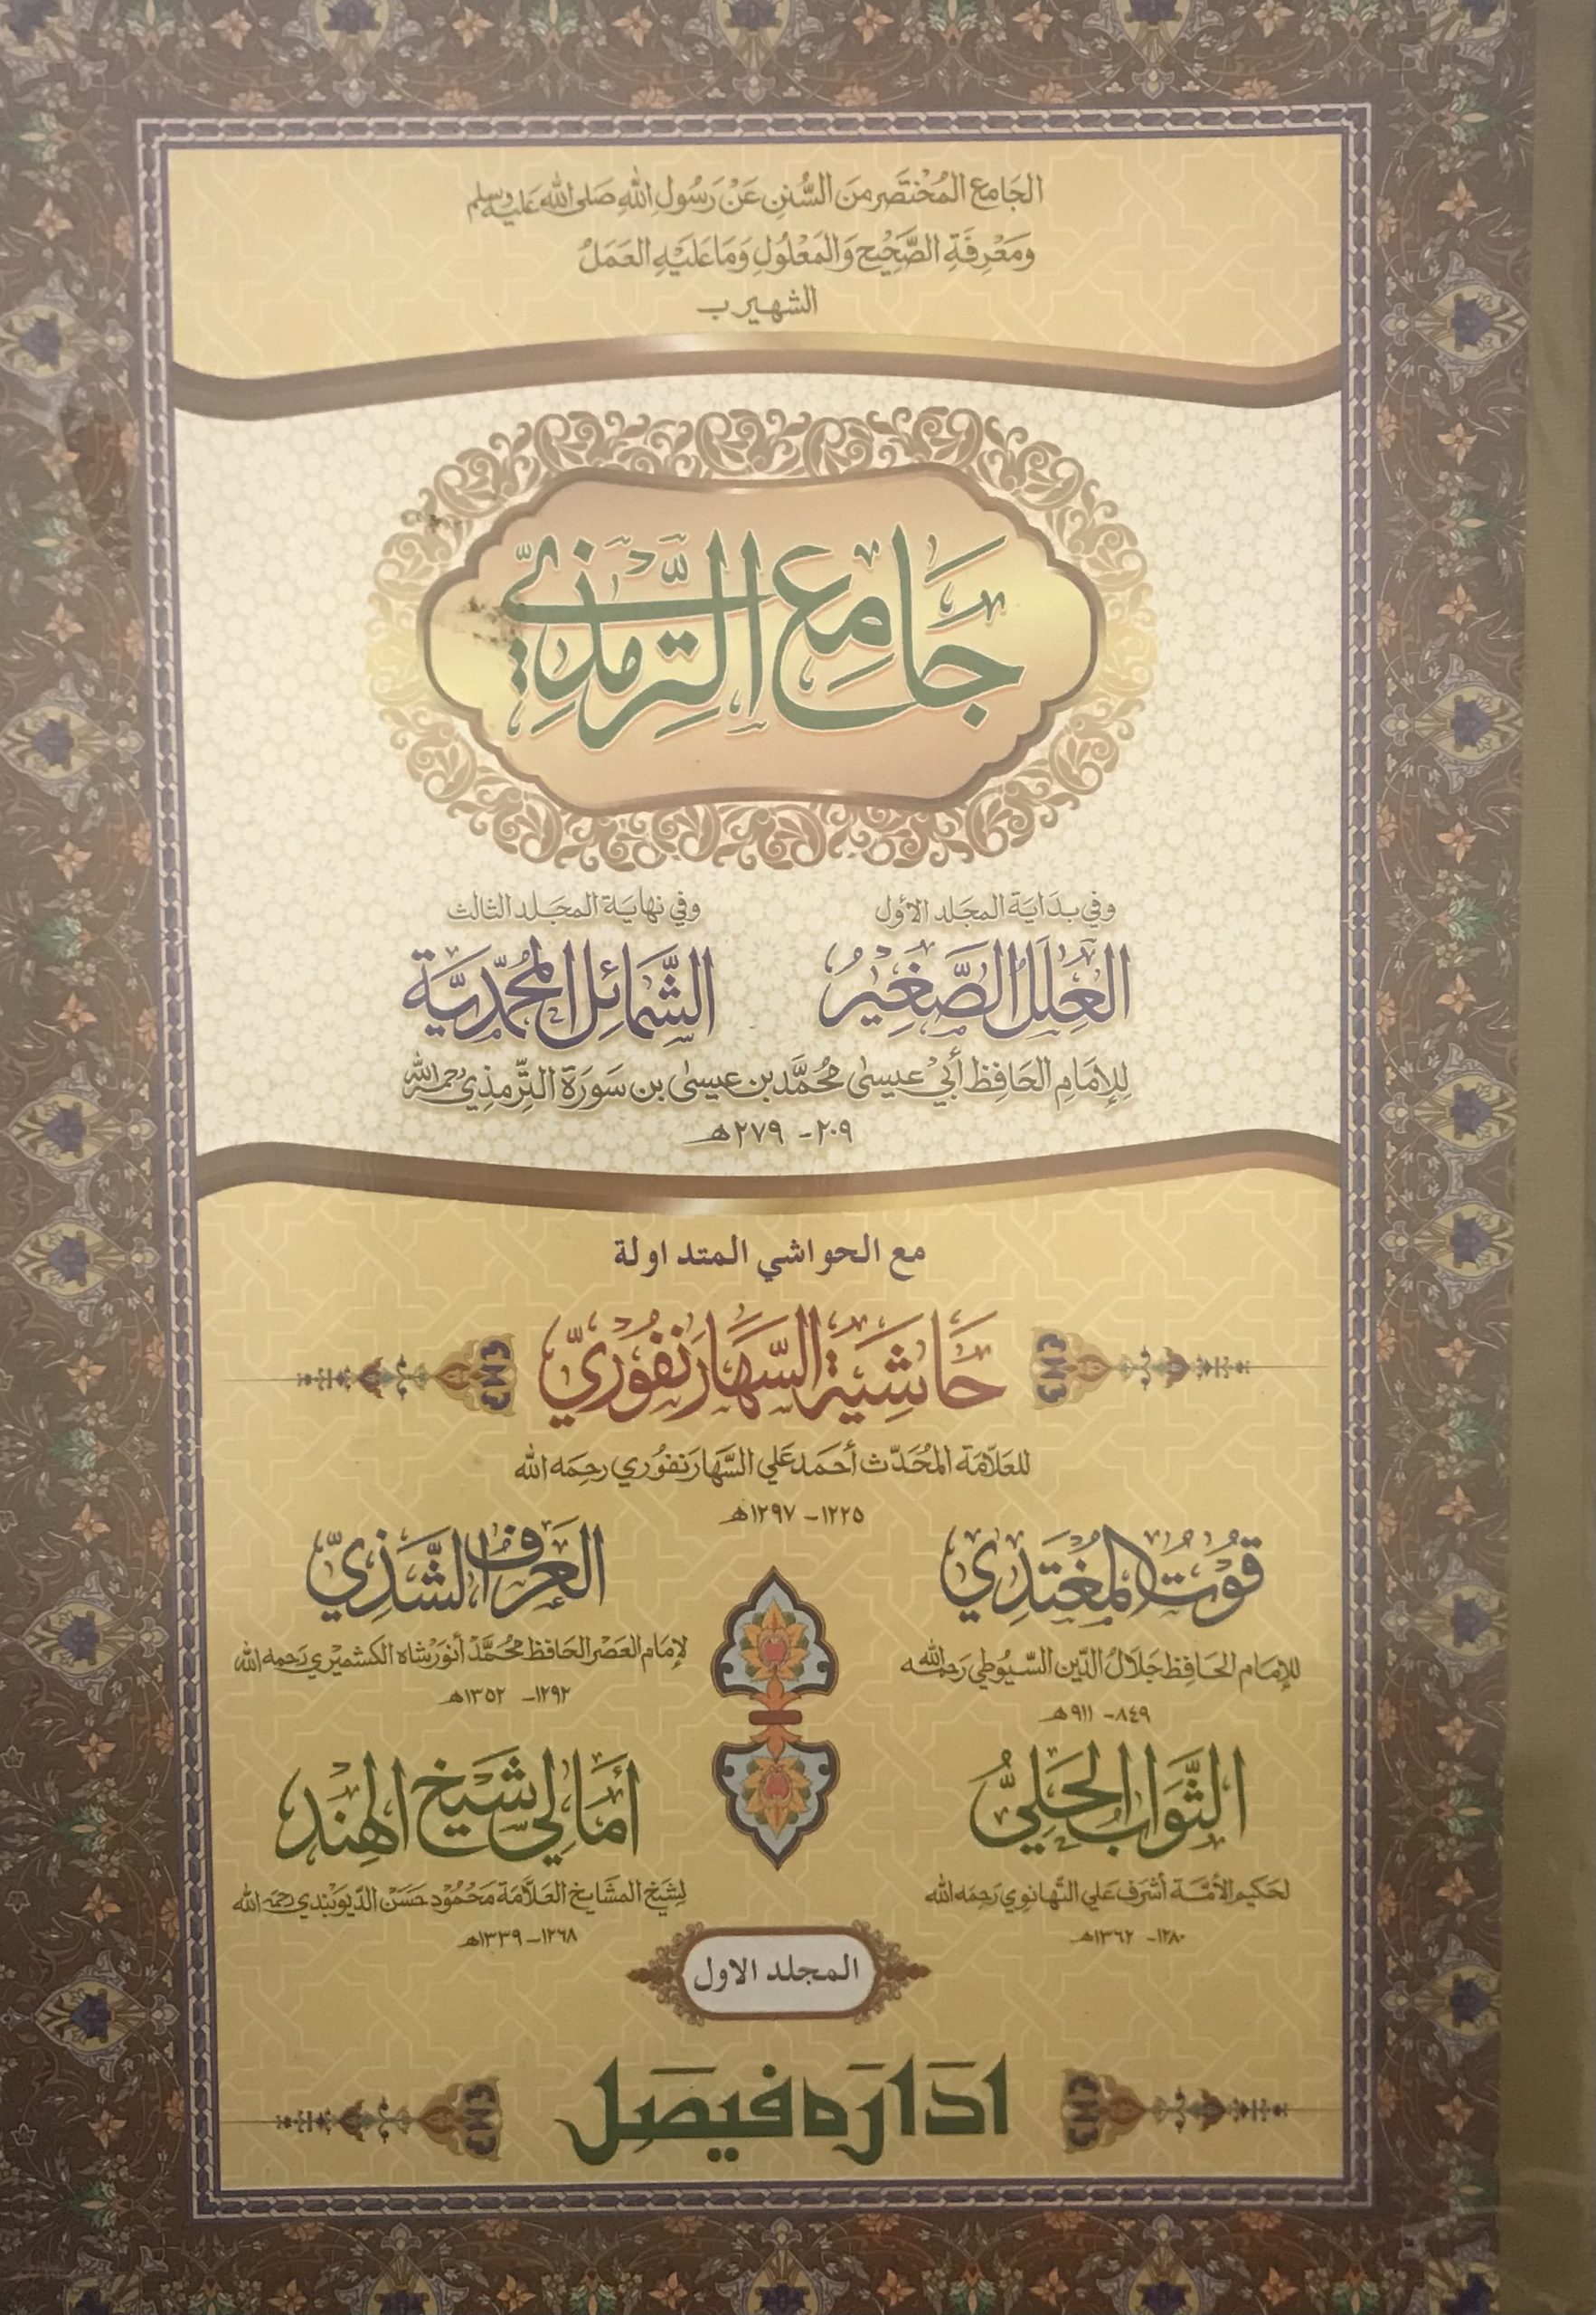 الجَامِع المُخْتَصَر مِنَ السُّنَنِ عَنْ رَسُولِ اللهِ صَلى الله عَليه وسلم
وَمَعْرِفَةِ الصَّحِيْحِ وَالمَعْلُولِ وَمَا عَلَيْهِ العَمَلُ
الشهير ب
جَامِع التِّرمِذِيّ
وفي بدَاية المجَلد الأول
العِلَلُ الصَّغِيْرُ
وفي نهاية المجَلد الثالث
الشَّمَائِل المُحَمَّدِيَّة
لِلإمَامِ الحَافِظ أبي عيسىٰ مُحَمَّد بن عيسىٰ بن سَورَة التِّرمذِي رحمه الله
٢٠٩ - ٢٧٩هـ
مع الحواشي المتداولة
حَاشِيَة السَّهَارَنفُورِيّ
للعَلّامَة المُحَدّث أحمَد عَلي السَّهَارَنفُوري رحِمَه الله
١٢٢٥ - ١٢٩٧هـ
قُوْتُ المُغْتَذِي
للإمَام الحَافِظ جَلَالُ الدّين السّيُوطي رَحمه الله
٨٤٩ - ٩١١هـ
العَرف الشَّذِيّ
لإمَام العَصْر الحَافِظ مُحَمَّدْ أنوَرْشَاه الكشمِيْري رَحِمه الله
١٢٩٢ - ١٣٥٢هـ
الثَّوَابُ الحَلِيُّ
لحَكيم الأمَّة أشرَف عَلي التَّهَانوي رَحِمَه الله
١٢٨٠ - ١٣٦٢هـ
أمَالِي شَيْخ الهِنْد
لِشَيْخ المشَايخ العَلّامَة مَحْمُود حَسَنْ الدّيوبَندي رحمَه الله
١٢٦٨ - ١٣٣٩هـ
المجلد الاول
ادارہ فیصل